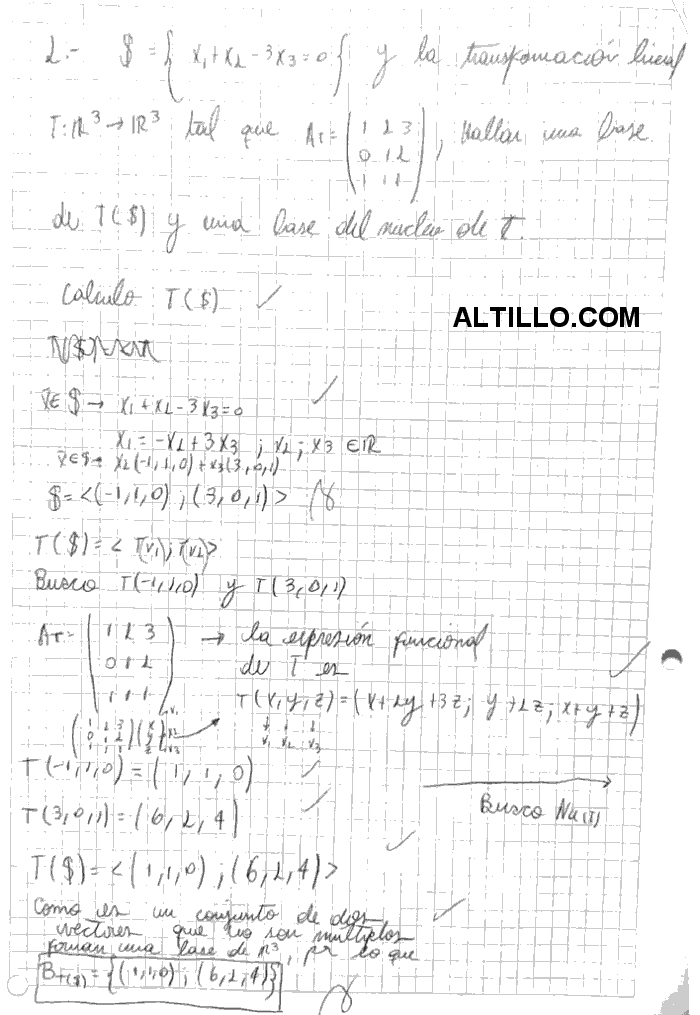 2.- $ = { x₁+x₂-3x₃=0 } y la transformación lineal
T: ℝ³→ℝ³ tal que A_T = (1 2 3 / 0 1 2 / 1 1 1), Hallar una base
de T($) y una base del nucleo de T.
Calculo T($) ✓
ALTILLO.COM
x̄∈$ → x₁+x₂-3x₃=0 ✓
x₁=-x₂+3x₃ ; x₂; x₃ ∈ℝ
x̄∈$→ x₂(-1,1,0)+x₃(3,0,1)
$=<(-1,1,0) ; (3,0,1)>
T($)=< T(v₁); T(v₂)>
Busco T(-1,1,0) y T(3,0,1)
A_T = (1 2 3 / 0 1 2 / 1 1 1) → la expresión funcional
de T es ✓
T(x,y,z)=(x+2y+3z; y+2z; x+y+z)
↓ ↓ ↓
v₁ v₂ v₃
(1 2 3 / 0 1 2 / 1 1 1)(x / y / z) v₁ v₂ v₃
T(-1,1,0)=(1,1,0) ✓
T(3,0,1)=(6,2,4) ✓
Busco Nu(T)
T($)=<(1,1,0) ; (6,2,4)> ✓
Como es un conjunto de dos ✓
vectores que no son multiplos
forman una base de ℝ³, por lo que
B_T($) = {(1,1,0) ; (6,2,4)}